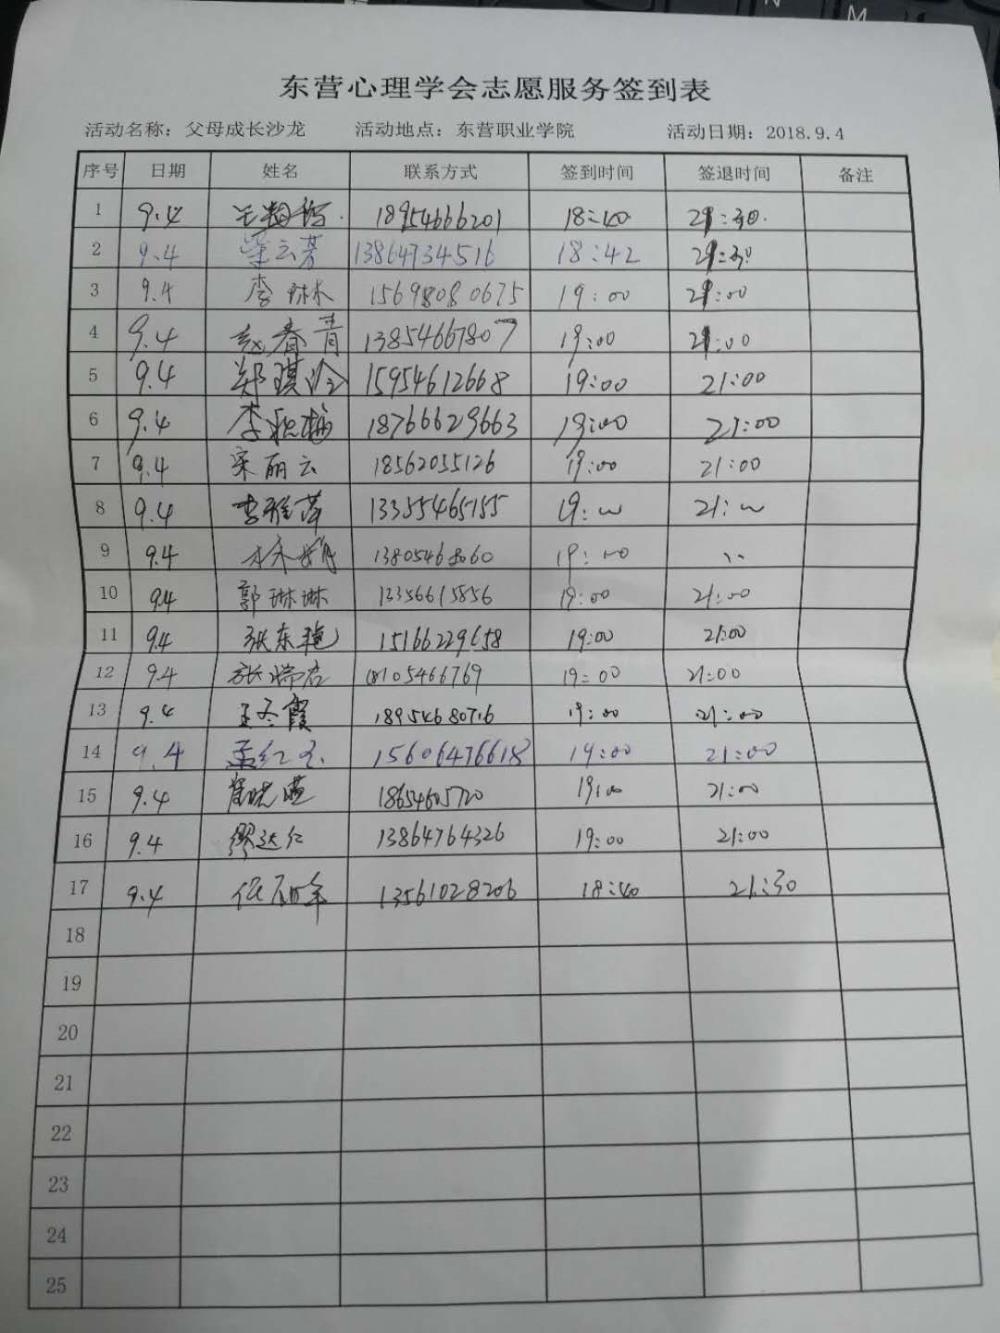 东营心理学会志愿服务签到表
活动名称：父母成长沙龙 活动地点：东营职业学院 活动日期：2018.9.4
序号 日期 姓名 联系方式 签到时间 签退时间 备注
1 9.4 18954666201 18:40 21:30.
2 9.4 梁云芳 13864734516 18:42 21:30
3 9.4 李琳 15698080675 19:00 21:00
4 9.4 赵春青 13854667807 19:00 21:00
5 9.4 郑琪 15954612668 19:00 21:00
6 9.4 18766629663 19:00 21:00
7 9.4 宋丽云 18562055126 19:00 21:00
8 9.4 李雅萍 13355465155 19:00 21:00
9 9.4 13805468060 19:00
10 9.4 郭琳琳 12356615856 19:00 21:00
11 9.4 张东艳 15166229658 19:00 21:00
12 9.4 张瑞君 18105466769 19:00 21:00
13 9.4 王冬霞 18954680716 19:00 21:00
14 9.4 孟红玉 15606476618 19:00 21:00
15 9.4 崔晓燕 19:00 21:00
16 9.4 缪达仁 13864764326 19:00 21:00
17 9.4 13561028206 18:40 21:30
18
19
20
21
22
23
24
25